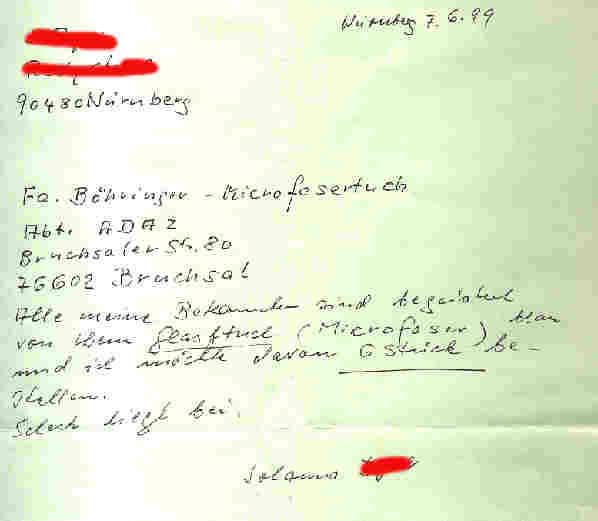 Nürnberg 7.6.99
90480 Nürnberg
Fa. Böhringer - Microfasertuch
Abt. ADAZ
Bruchsaler Str. 80
76602 Bruchsal
Alle meine Bekannten sind begeistert
von Ihrem Glastuch (Microfaser) blau
und ich möchte davon 6 Stück be-
stellen.
Scheck liegt bei.